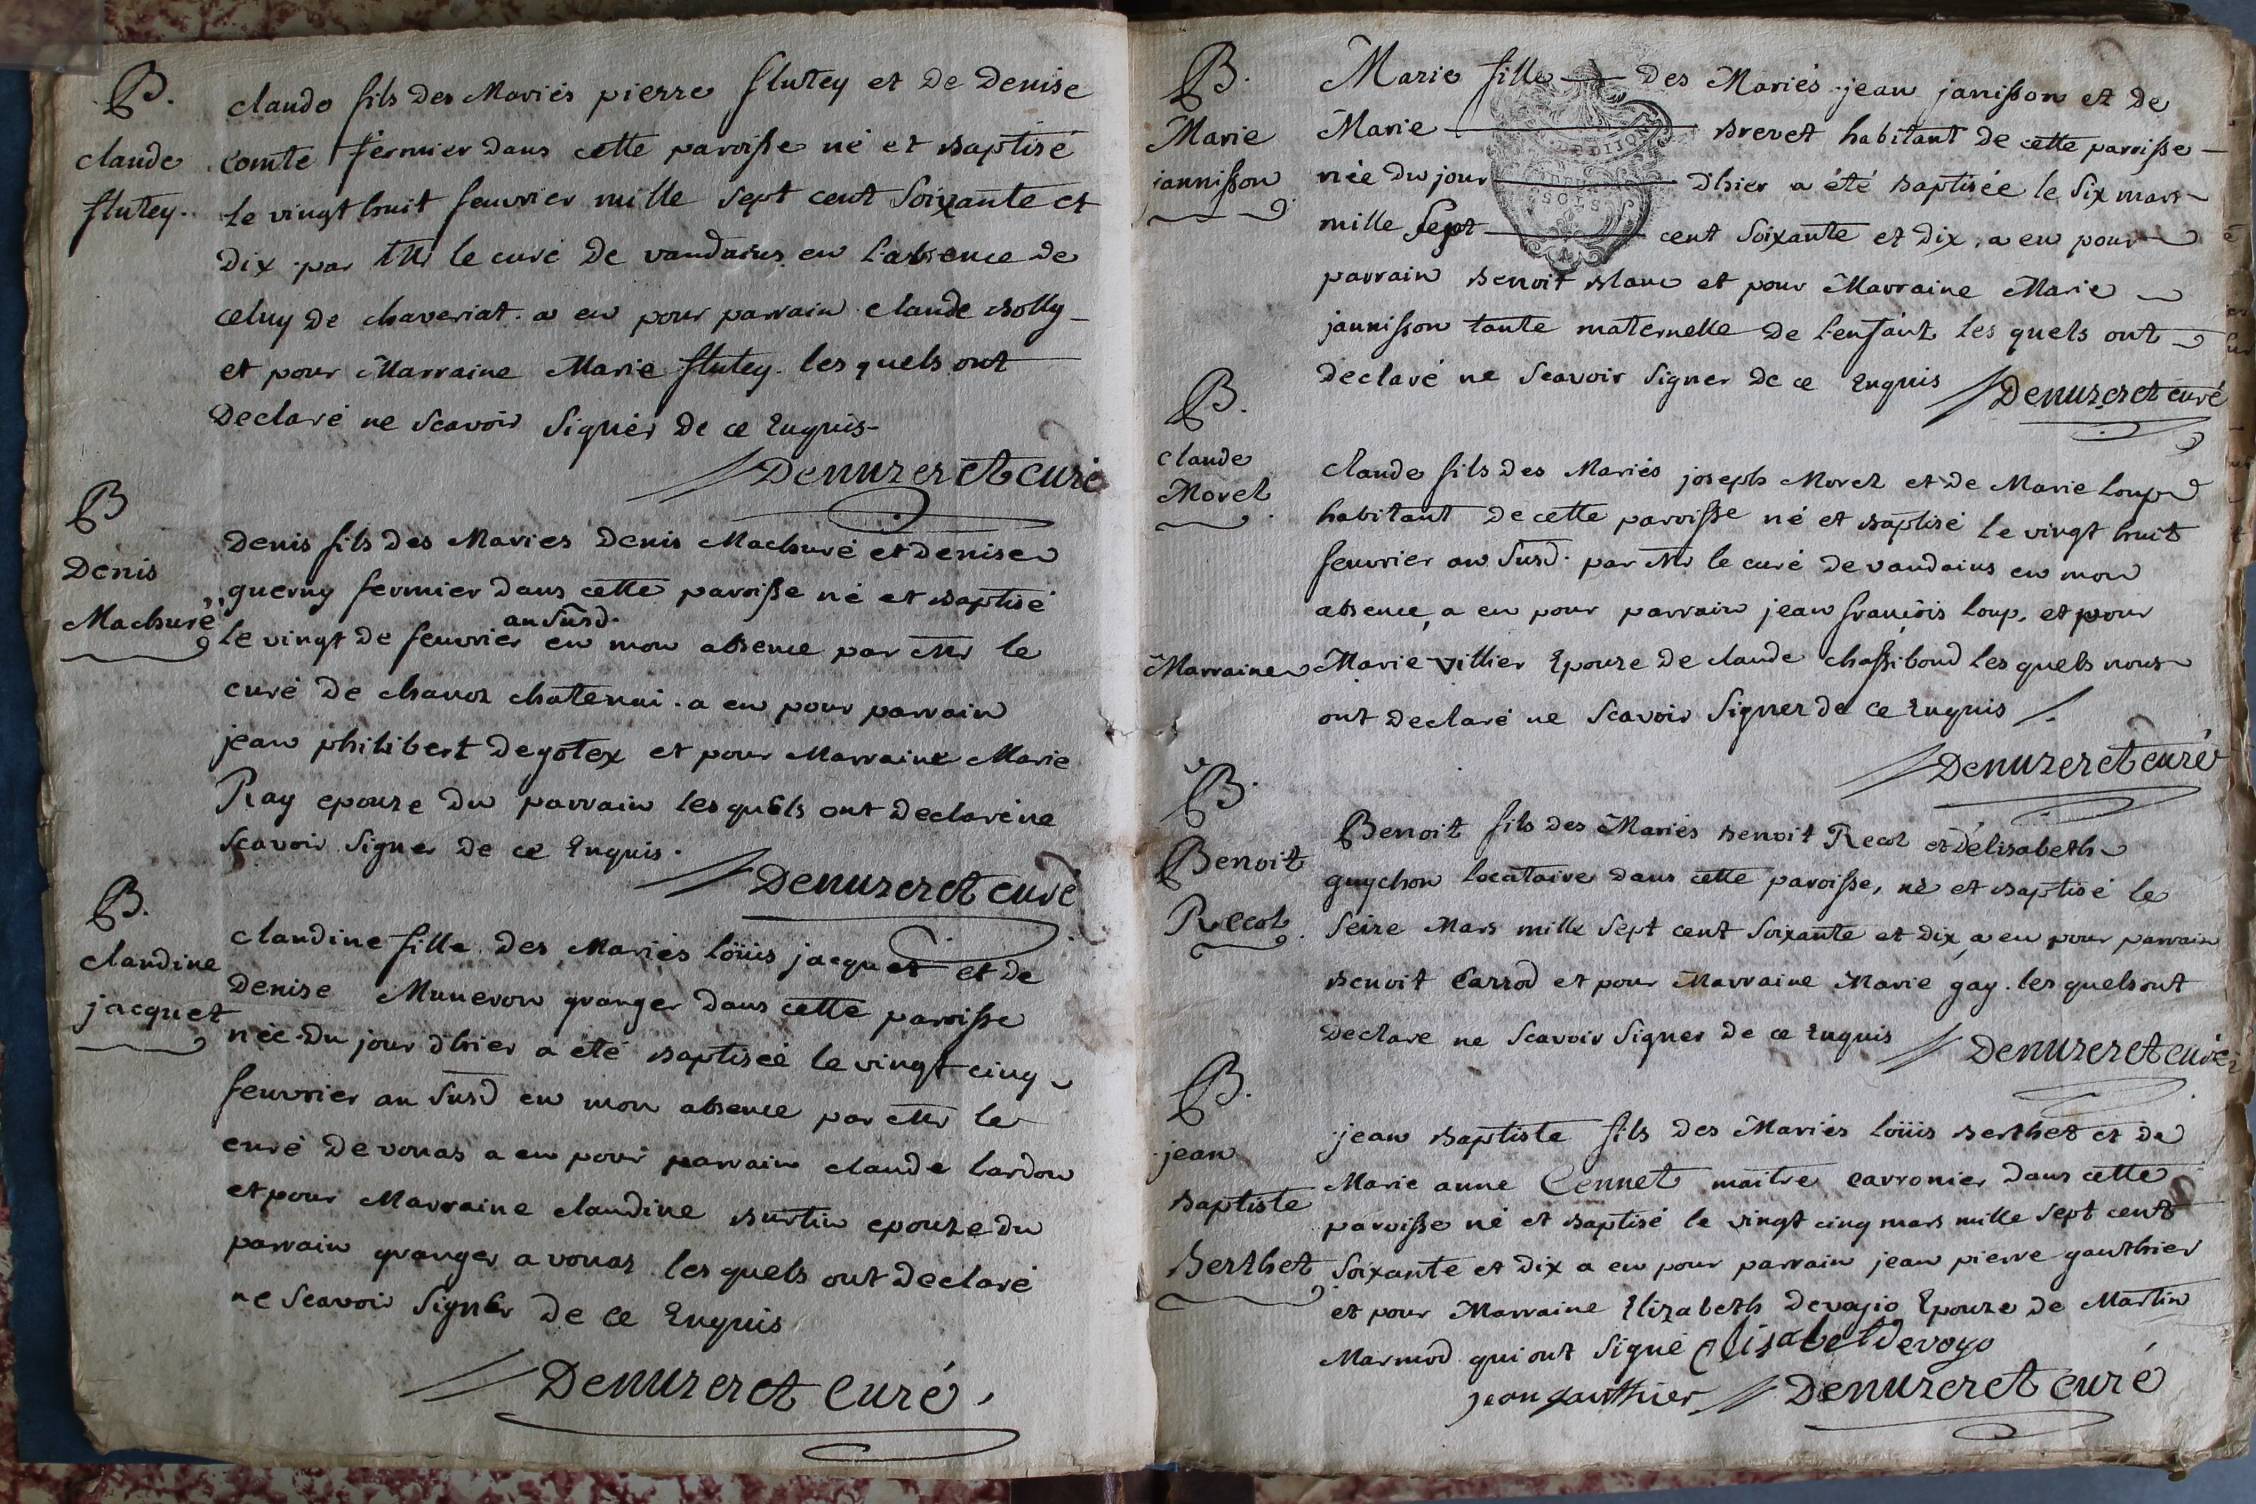 B.
claude
flutey.
claude fils des Mariés pierre flutey et de denise
comte fermier dans cette paroisse né et baptisé
le vingt huit feuvrier mille sept cent soixante et
dix par Mr le curé de vandains en l'absence de
celuy de chaveriat. a eu pour parrain claude bolly
et pour Marraine Marie flutey. les quels ont
declaré ne scavoir signer de ce Enquis
Denuzeret curé
B
Denis
Machuré
denis fils des Maries denis Machuré et denise
guerny fermier dans cette paroisse né et baptisé
an susd.
le vingt de feuvrier en mon absence par Mr le
curé de chanoz chatenai. a eu pour parrain
jean philibert degotex et pour Marraine Marie
Ray epouze du parrain les quels ont declaré ne
scavoir signer de ce Enquis.
Denuzeret curé
B.
claudine
jacquet
claudine fille des Mariés loüis jacquet et de
denise Muneron granger dans cette paroisse
née du jour d'hier a été baptiseé le vingt cinq
feuvrier an susd en mon absence par Mr le
curé de vonas a eu pour parrain claude lardon
et pour Marraine claudine burtin epouze du
parrain granger a vonas les quels ont declaré
ne scavoir signer de ce Enquis
Denuzeret curé
B.
Marie
jannisson
Marie fille des Mariés jean janisson et de
Marie brevet habitant de cette paroisse
née du jour d'hier a été baptisée le six mars
mille sept cent soixante et dix, a eu pour
parrain benoit blanc et pour Marraine Marie
jannisson tante maternelle de l'enfant les quels ont
declaré ne scavoir signer de ce Enquis Denuzeret curé
B.
claude
Morel
claude fils des Mariés joseph Morel et de Marie loup
habitant de cette paroisse né et baptisé le vingt huit
feuvrier an susd. par Mr le curé de vandains en mon
absence, a eu pour parrain jean françois loup, et pour
Marraine Marie villier Epouze de claude chassibond les quels nous
ont declaré ne scavoir signer de ce Enquis
Denuzeret curé
B.
Benoit
Recol
Benoit fils des Mariés benoit Recol et d'élisabeth
guychon locataire dans cette paroisse, né et baptisé le
seize Mars mille sept cent soixante et dix, a eu pour parrain
benoit Carrod et pour Marraine Marie gay. les quels ont
declare ne scavoir signer de ce Enquis Denuzeret curé
B.
jean
baptiste
Berthet
jean baptiste fils des Mariés loüis berthet et de
Marie anne Cennet maitre carronier dans cette
paroisse né et baptisé le vingt cinq mars mille sept cent
soixante et dix a eu pour parrain jean pierre gauthier
et pour Marraine Elizabeth devogio Epouze de Martin
Marmod qui ont signé Elisabet devoyo
jean gautthier Denuzeret curé